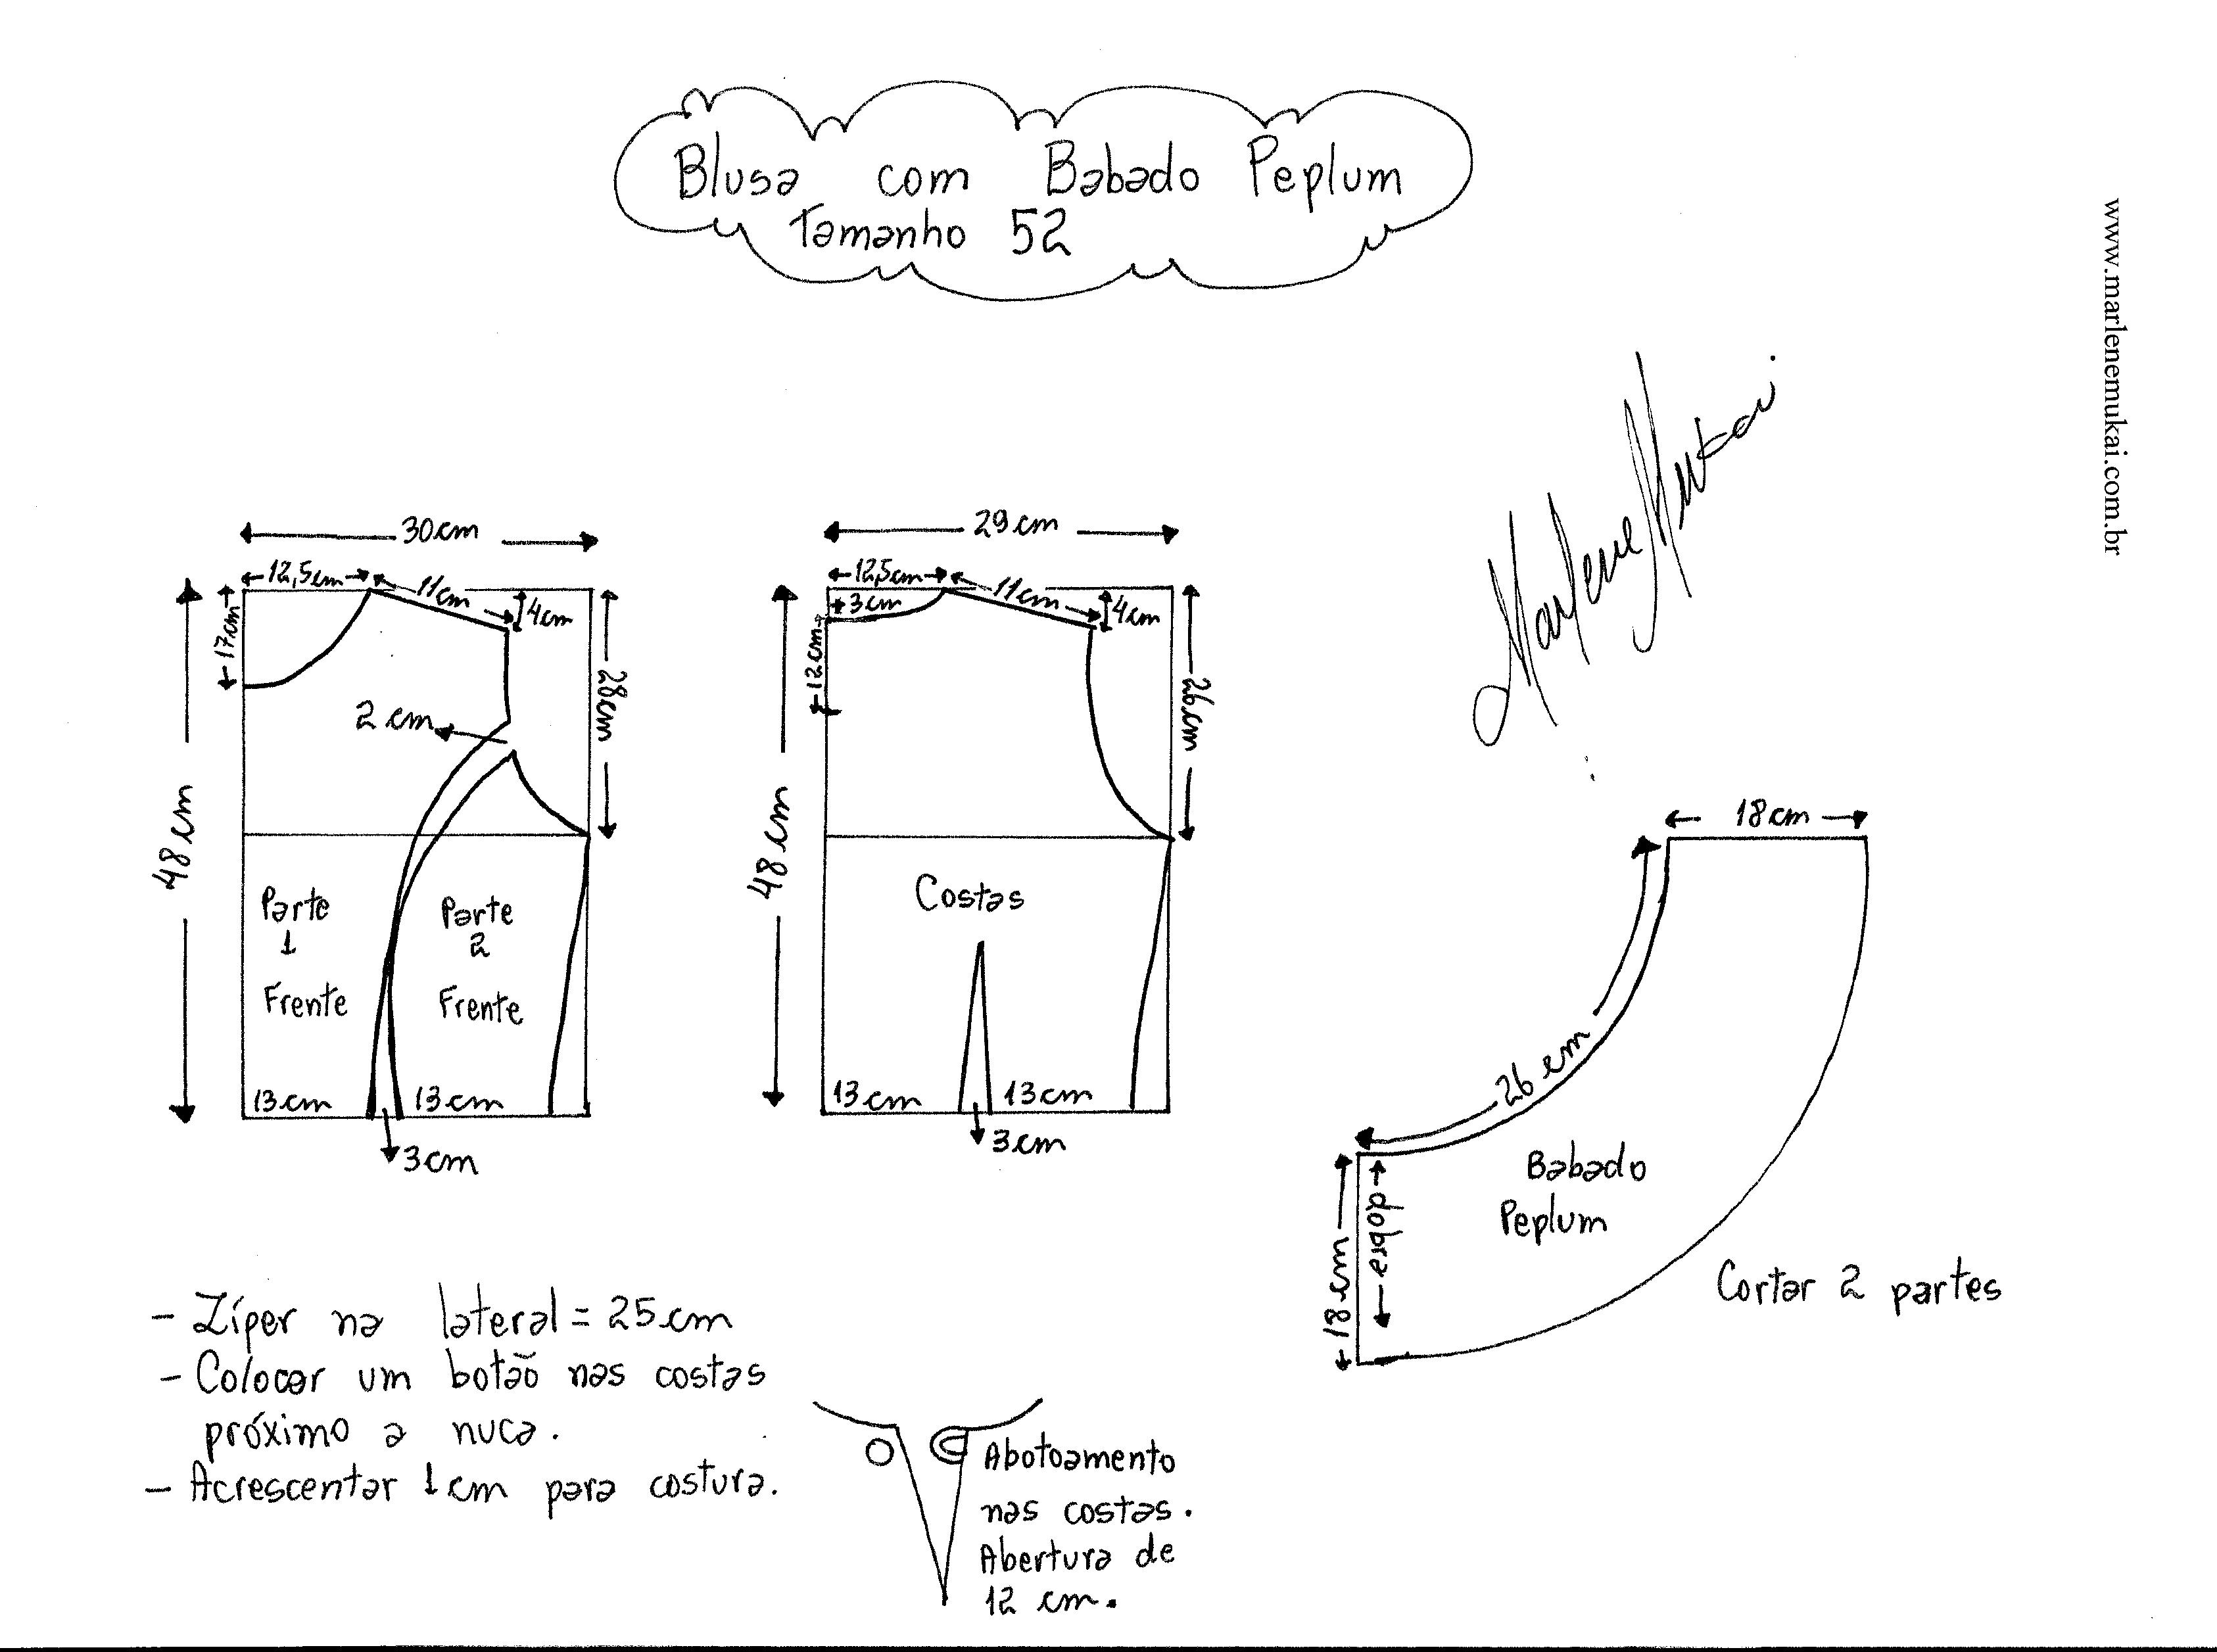 Blusa com Babado Peplum
Tamanho 52
www.marlenemukai.com.br
Marlene Mukai
30cm
12,5cm
11cm
4cm
17cm
28cm
2 cm
48cm
Parte
1
Frente
Parte
2
Frente
13cm
13cm
3cm
29cm
12,5cm
11cm
4cm
3cm
12cm
26cm
48cm
Costas
13cm
13cm
3cm
18cm
26cm
Babado
Peplum
dobra
18cm
Cortar 2 partes
- Zíper na lateral = 25cm
- Colocar um botão nas costas
próximo a nuca.
- Acrescentar 1cm para costura.
Abotoamento
nas costas.
Abertura de
12 cm.